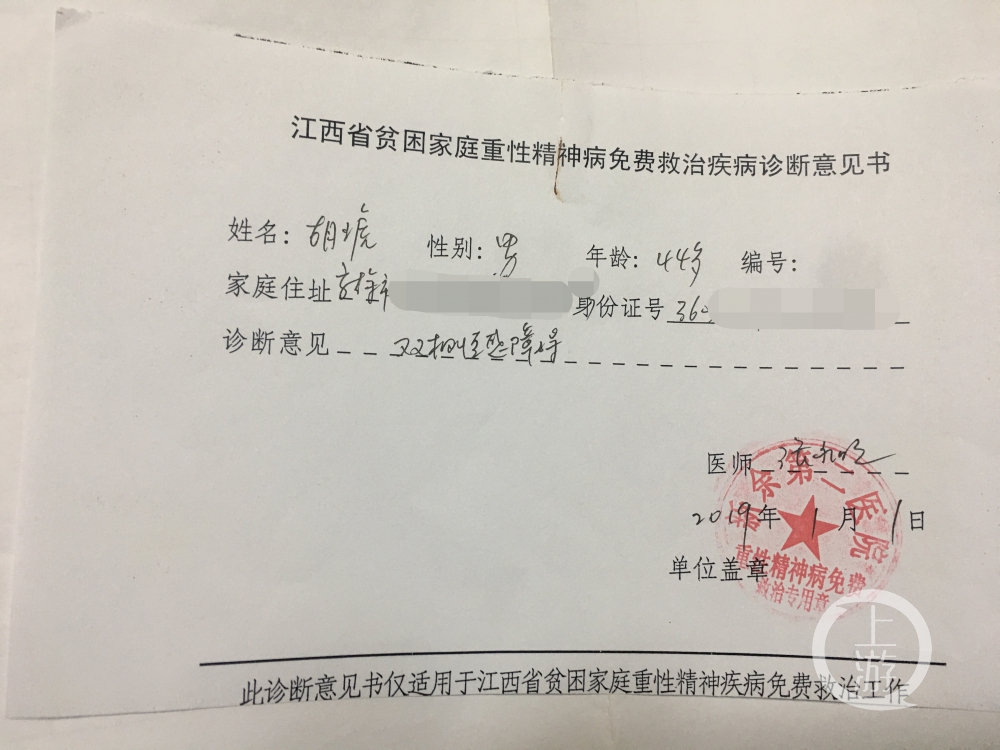 江西省贫困家庭重性精神病免费救治疾病诊断意见书
姓名： 性别：男 年龄：44岁 编号：
家庭住址 高安市 身份证号 36
诊断意见 双相情感障碍
医师
第二医院
2019年1月1日
单位盖章
重性精神病免费
救治专用章
上游
此诊断意见书仅适用于江西省贫困家庭重性精神疾病免费救治工作